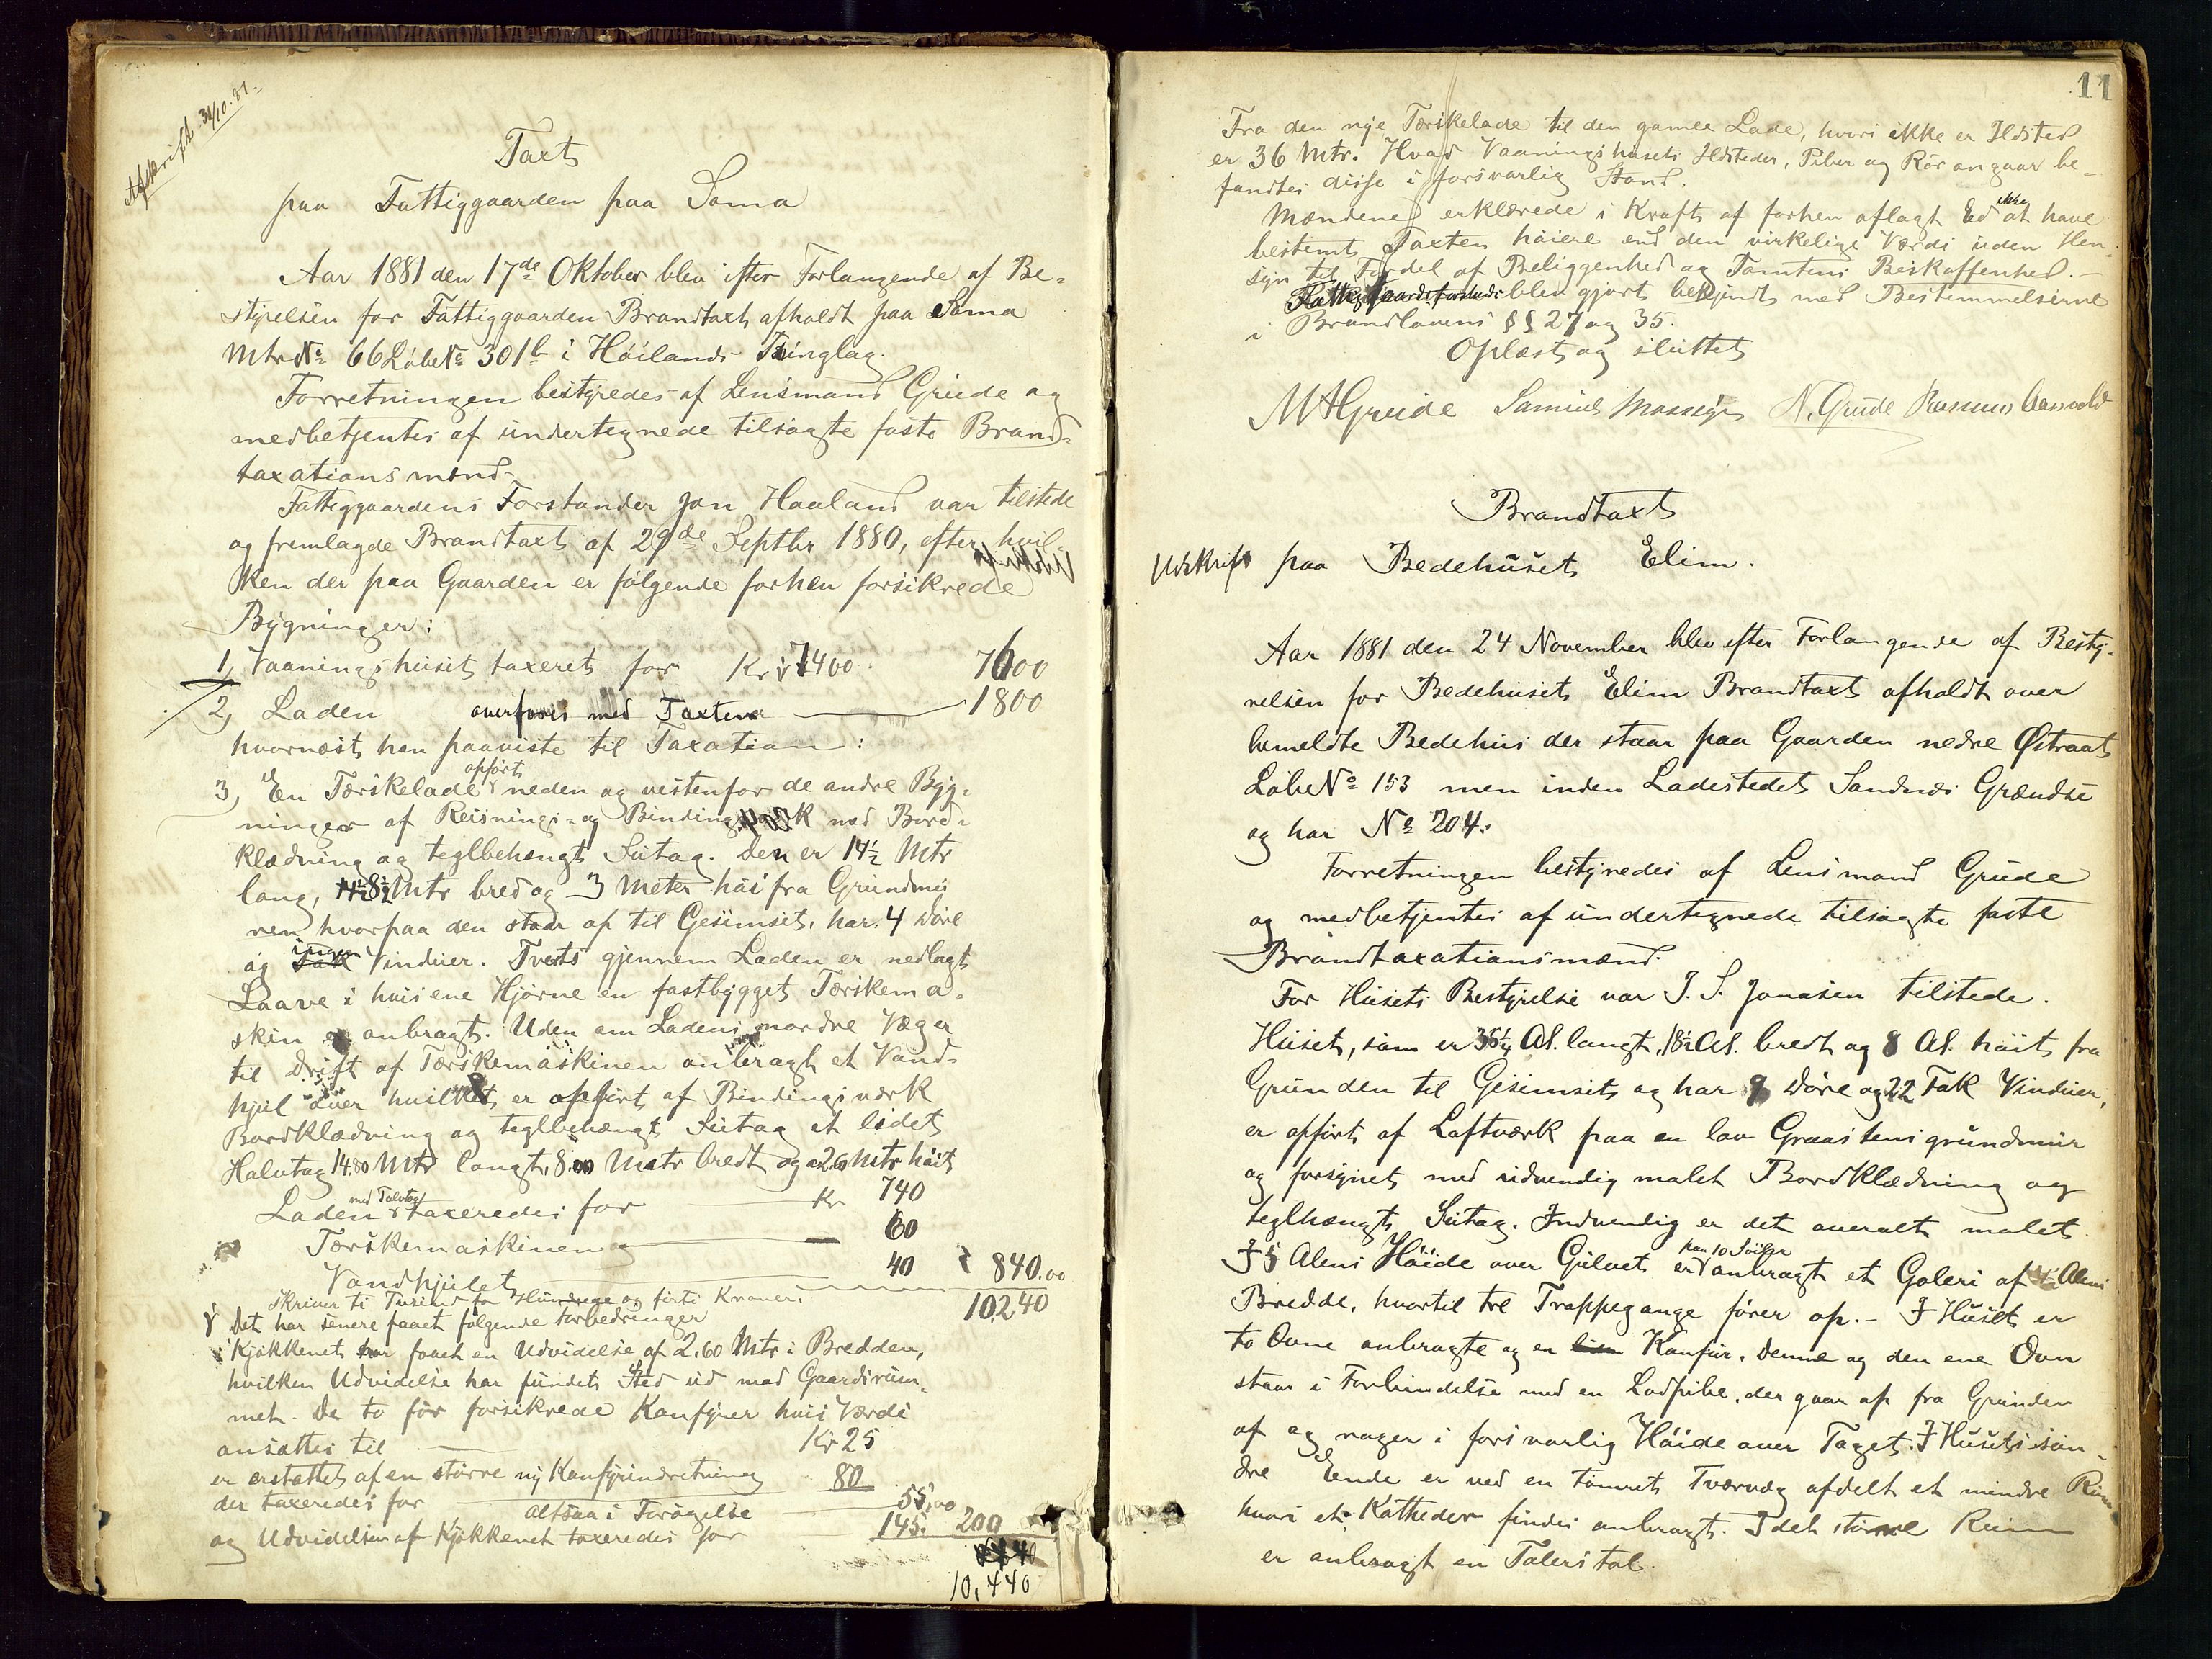 Afskrift 31/10.81.
Taxt
paa Fattiggaarden paa Soma
Aar 1881 den 17de Oktober blev efter Forlangende af Be-
styrelsen for Fattiggaarden Brandtaxt afholdt paa Soma
Mtr No 66 Løbe No 301b i Høilands Thinglag.
Forretningen bestyredes af Lensmand Grude og
medbetjentes af undertegnede tilsagte faste Brand-
taxationsmænd.
Fattiggaardens Forstander Jon Haaland var tilstede
og fremlagde Brandtaxt af 29de Septbr 1880, efter hvil-
ken der paa Gaarden er følgende forhen forsikrede
Bygninger:
1, Vaaningshuset taxeret for Kr 7400. 7600
2, Laden overføres med Taxten 1800
hvornæst han paaviste til Taxation:
3, En Tærskelade opført neden og vestenfor de andre Byg-
ninger af Reisnings- og Bindingsværk med Bord-
klædning og teglbehængt Sutag. Den er 14½ Mtr
lang, 8½ Mtr bred og 3 Meter høi fra Grundmu-
ren hvorpaa den staar op til Gesimset, har 4 Døre
og ingen Vinduer. Tverts gjennem Laden er nedlagt
Laave i hvis ene Hjørne en fastbygget Tærskema-
skin anbragt. Uden om Ladens nordre Væg er
til Drift af Tærskemaskinen anbragt et Vand-
hjul over hvilket er opført af Bindingsværk
Bordklædning og teglbehængt Sutag et lidet
Halvtag 14.80 Mtr langt, 8.00 Metr bredt og 2.60 Mtr høit
Laden med Talvtag taxeredes for Kr 740
Tærskemaskinen og 60
Vandhjulet 40 840.00
skriver ti Tusind for Hundrege og firti Kroner. 10240
Det har senere faaet følgende Forbedringer
Kjøkkenet har faaet en Udvidelse af 2,60 Mtr i Bredden,
hvilken Udvidelse har fundet Sted ud mod Gaardsrum-
met. De to før forsikrede Komfyrer hvis Værdi
ansættes til Kr 25
er erstattet af en større ny Komfyrindretning
der taxeredes for 80
altsaa i Forøgelse 55,00
og Udvidelsen af Kjøkkenet taxeredes for 145. 200
10,440
11
Fra den nye Tærskelade til den gamle Lade, hvori ikke er Ildsted
er 36 Mtr. Hvad Vaaningshusets Ildsteder, Piber og Rør angaar be-
fandtes disse i forsvarlig Stand.
Mændene erklærede i Kraft af forhen aflagt Ed ikke at have
bestemt Taxten høiere end den virkelige Værdi uden Hen-
syn til Fordel af Beliggenhed og Tomtens Beskaffenhed.
Fattiggaardsforstander blev gjort bekjendt med Bestemmelserne
i Brandlovens §§ 27 og 35.
Oplæst og sluttet
MAGrude Samuel Mossige N. Grude Rasmus Aasvold
Brandtaxt
Udskrift paa Bedehuset Elim.
Aar 1881 den 24 November blev efter Forlangende af Besty-
relsen for Bedehuset Elim Brandtaxt afholdt over
bemeldte Bedehus der staar paa Gaarden nedre Østraat
Løbe No 153 men inden Ladestedet Sandnæs Grændse
og har No 204.
Forretningen bestyredes af Lensmand Grude
og medbetjentes af undertegnede tilsagte faste
Brandtaxationsmænd.
For Husets Bestyrelse var J. S. Jonasen tilstede.
Huset, som er 35¼ Al. langt, 18½ Al. bredt og 8 Al. høit fra
Grunden til Gesimset og har 9 Døre og 22 Fak Vinduer,
er opført af Laftværk paa en lav Graastensgrundmur
og forsynet med udvendig malet Bordklædning og
teglhængt Sutag. Indvendig er det overalt malet.
I 5 Alens Høide over Gulvet er paa 10 Søiler anbragt et Galeri af 4 Alens
Bredde, hvortil tre Trappegange fører op. - I Huset er
to Ovne anbragte og en Komfur. Denne og den ene Ovn
staar i Forbindelse med en Lodpibe, der gaar op fra Grunden
af og rager i forsvarlig Høide over Taget. I Husets søn-
dre Ende er ved en tømret Tværvæg afdelt et mindre Rum
hvori et Katheder findes anbragt. I det større Rum
er anbragt en Talerstol.